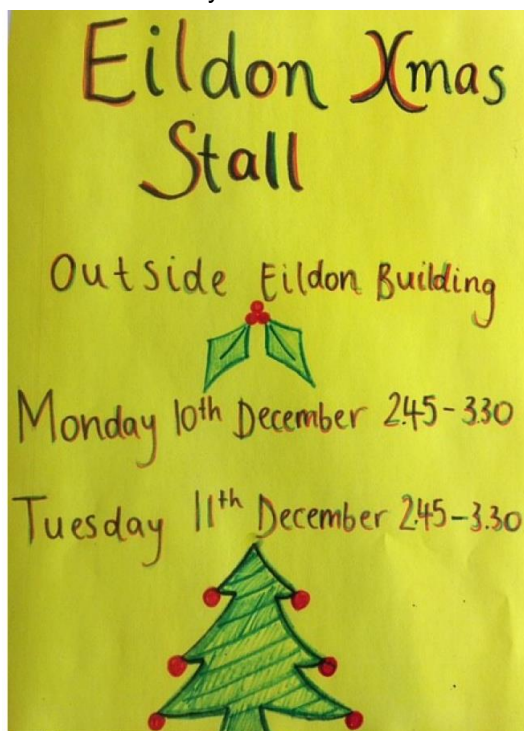 Eildon Xmas
Stall
Outside Eildon Building
Monday 10th December 2.45-3.30
Tuesday 11th December 2.45-3.30